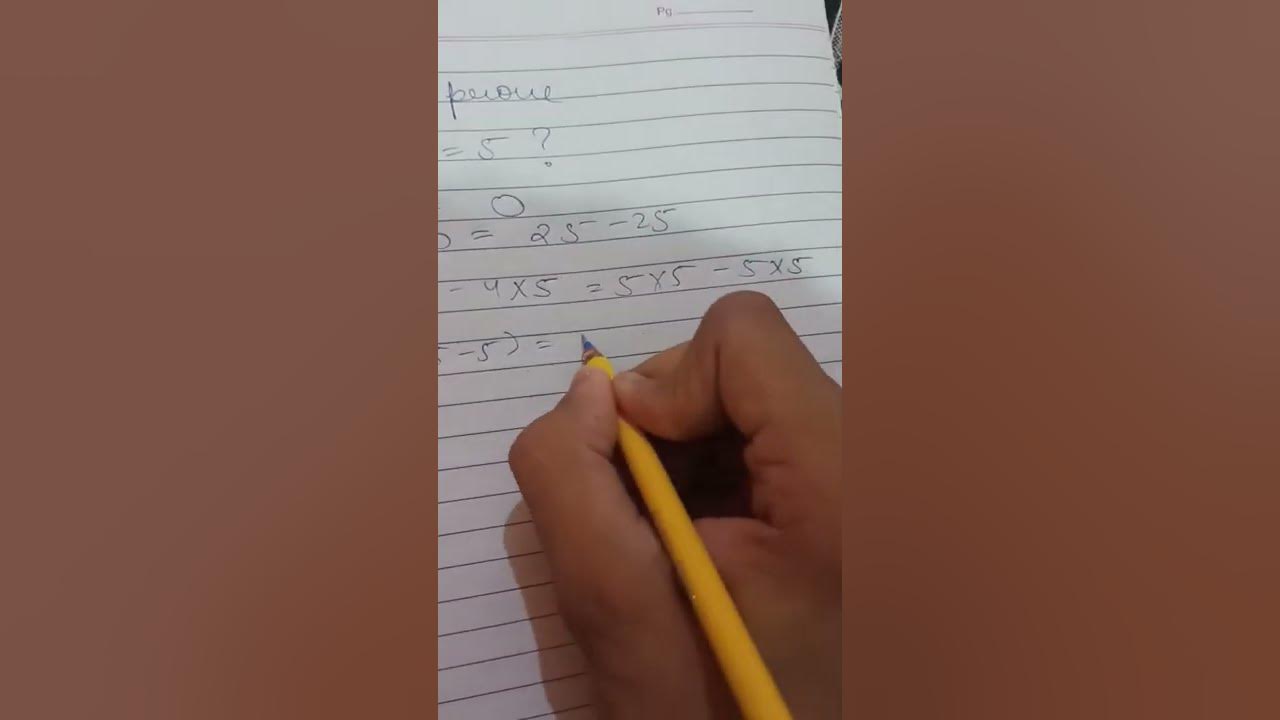 Pg.
prove
= 5 ?
0
0 = 25 - 25
- 4×5 = 5×5 - 5×5
5 - 5) =